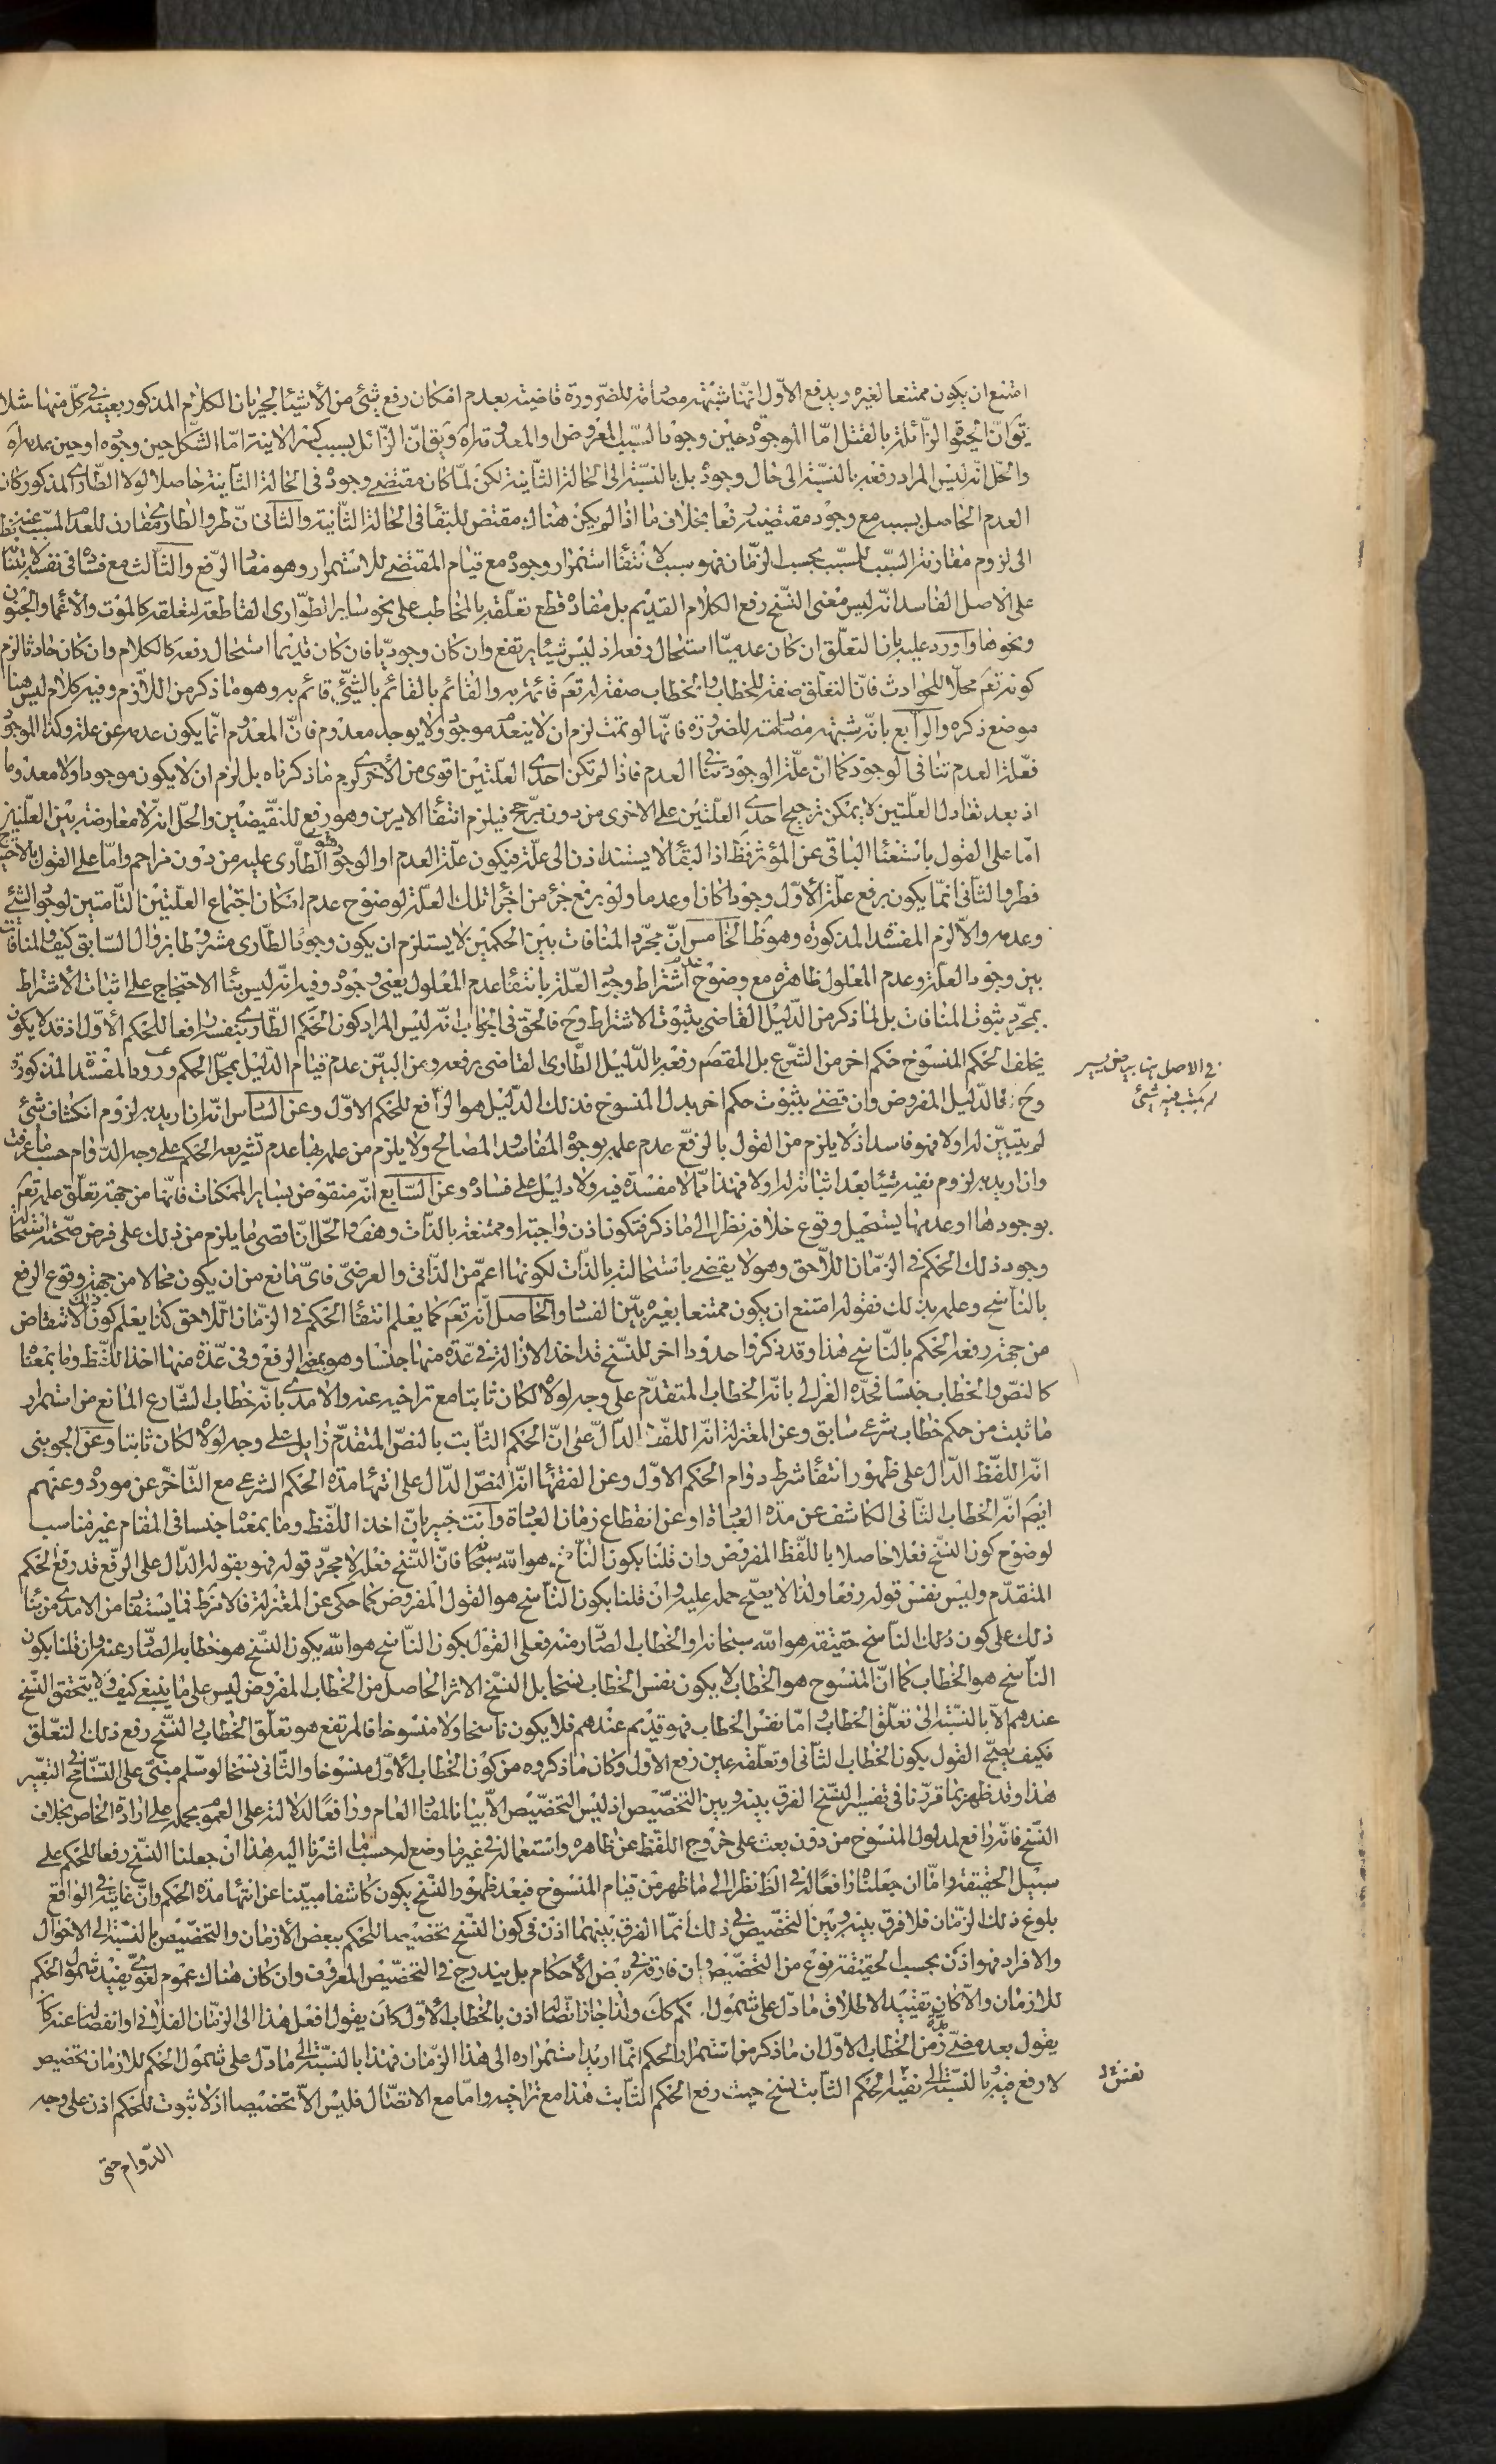 امتنع ان يكون ممتنعا لغيره ويدفع الاوّل انّها شبهة مصادمة للضّرورة قاضية بعدم امكان رفع شئ من الأشياء لجريان الكلام المذكور بعينه فى كلّ منها مثلا
يقَ انّ الحيٰوة الزّائلة بالقتل امّا الموجودة حين وجود السّبب المفروض او المعدومة اه ويقَ انّ الزّائل بسبب كسر الانية امّا الشّكل حين وجوده او حين عدمه اه
والحلّ انّه ليس المراد رفعه بالنّسبة الى حال وجوده بل بالنسبة الى الحالة الثّانية لكن لمّا كان مقتضى وجوده فى الحالة الثّانية حاصلا لولا الطّارى المذكور كان
العدم الحاصل بسببه مع وجود مقتضيه رفعا بخلاف ما اذا لم يكن هناك مقتض للبقاء فى الحالة الثّانية والثّانى انّ طروّ الطّارى مقارن للعدم المسبّب عنه نظرا
الى لزوم مقارنة السّبب للمسبّب بحسب الزّمان فهو سبب لانتفاء استمرار وجوده مع قيام المقتضى للاستمرار وهو مفاد الرّفع والثّالث مع فساده فى نفسه لابتنائه
على الاصل الفاسد انّه ليس معنى النّسخ رفع الكلام القديم بل مفاده قطع تعلّقه بالمخاطب على نحو ساير الطّوارى القاطعة لتعلّقه كالموت والاغماء والجنون
ونحوها واورد عليه بانّ التعلّق ان كان عدميّا استحال رفعه اذ ليس شيئا يرتفع وان كان وجوديّا فان كان قديما استحال رفعه كالكلام وان كان حادثا لزم
كونه تعَ محلّا للحوادث فانّ التعلّق صفة للخطاب والخطاب صفة له تعَ قائمة به والقائم بالقائم بالشّئ قائم به وهو ما ذكر من اللّازم وفيه كلام ليس هنا
موضع ذكره والرّابع بانّه شبهة مصادمة للضرورة فانّها لو تمّت لزم ان لا ينعدم موجود ولا يوجد معدوم فانّ المعدوم انّما يكون عدمه عن علّة وكذا الموجود
فعلّة العدم تنافى الوجود كما انّ علّة الوجود تنافى العدم فاذا لم تكن احدى العلّتين اقوى من الأخرى لزم ما ذكرناه بل لزم ان لا يكون موجودا ولا معدوما
اذ بعد تعادل العلّتين لا يمكن ترجيح احدى العلّتين على الاخرى من دون مرجّح فيلزم انتفاء الامرين وهو رفع للنّقيضين والحلّ انّه لا معارضة بين العلّتين
امّا على القول باستغناء الباقى عن المؤثّر فظَ اذ البقاء لا يستند اذن الى علّة فيكون علّة العدم او الوجود الطّارى عليه من دون مزاحم وامّا على القول بالاحتياج
فطروّ الثّانى انّما يكون برفع علّة الأوّل وجودا كان او عدما ولو برفع جزء من اجزاء تلك العلّة لوضوح عدم امكان اجتماع العلّتين التّامّتين لوجود الشّئ
وعدمه والّا لزم المفسدة المذكورة وهو ظَ الخامس انّ مجرّد المنافات بين الحكمين لا يستلزم ان يكون وجود الطّارى مشروطا بزوال السّابق كيف والمنافات
بين وجود العلّة وعدم المعلول ظاهرة مع وضوح عدم اشتراط وجود العلّة بانتفاء عدم المعلول يعنى وجوده وفيه انّه ليس بناء الاحتجاج على اثبات الأشتراط
بمجرّد ثبوت المنافات بل لما ذكر من الدّليل القاضى بثبوت الاشتراط وحَ فالحقّ فى الجواب انّه ليس المراد كون الحكم الطّارى بنفسه رافعا للحكم الأوّل اذ قد لا يكون
يخلف الحكم المنسوخ حكم اخر من الشّرع بل المقصَم رفعه بالدّليل الطّارى القاضى برفعه ومن البيّن عدم قيام الدّليل بمحلّ الحكم ورود المفسدة المذكورة
فى الاصل هنا بياض يسير
لم يكتب فيه شئ
وحَ فالدّليل المفروض وان قضى بثبوت حكم اخر بدل المنسوخ فذلك الدّليل هو الرّافع للحكم الاوّل وعن السّادس انّه ان اريد به لزوم انكشاف شئ
لم يتبيّن له اولا فهو فاسد اذ لا يلزم من القول بالرّفع عدم علمه بوجوه المفاسد والمصالح ولا يلزم من علمه بها عدم تشريعه الحكم على وجه الدّوام حسبما عرفت
وان اريد به لزوم نفيه شيئا بعد اثباته له اولا فهذا ممّا لا مفسدة فيه ولا دليل على فساده وعن السّابع انّه منقوض بساير الممكنات فانّها من جهة تعلّق علمه تعَ
بوجودها او عدمها يستحيل وقوع خلافه نظرا الى ما ذكر فتكون اذن واجبة او ممتنعة بالذّات وهف والحلّ انّ اقصى ما يلزم من ذلك على فرض صحّته استحالة
وجود ذلك الحكم فى الزّمان اللّاحق وهو لا يقضى باستحالته بالذّات لكونها اعمّ من الذّاتى والعرضىّ فاىّ مانع من ان يكون محالا من جهة وقوع الرفع
بالنّاسخ وعلمه بذلك فقوله امتنع ان يكون ممتنعا بغيره بيّن الفساد والحاصل انّه تعَ كما يعلم انتفاء الحكم فى الزّمان اللّاحق كذا يعلم كون ذلك الانتفاء
من جهة رفعه الحكم بالنّاسخ هذا وقد ذكروا حدودا اخر للنسخ قد اخذ الازالة فى عدّة منها جنسا وهو بمعنى الرفع وفى عدّة منها اخذ اللّفظ وما بمعناه
كالنصّ والخطاب جنسا فحدّه الغزالى بانّه الخطاب المتقدّم على وجه لولاه لكان ثابتا مع تراخيه عنه والامدى بانّه خطاب الشّارع المانع من استمرار
ما ثبت من حكم خطاب شرعى سابق وعن المعتزلة انّه اللّفظ الدّالّ على انّ الحكم الثّابت بالنصّ المتقدّم زايل على وجه لولاه لكان ثابتا وعن الجوينى
انّه اللفظ الدّال على ظهور انتفاء شرط دوام الحكم الاوّل وعن الفقهاء انّه النصّ الدّال على انتهاء مدّة الحكم الشرعى مع التّاخّر عن مورده وعنهم
ايضَ انّه الخطاب الثّانى الكاشف عن مدّة العبادة او عن انقطاع زمان العبادة وانت خبير بانّ اخذ اللّفظ وما بمعناه جنسا فى المقام غير مناسب
لوضوح كون النسخ فعلا حاصلا باللّفظ المفروض وان قلنا بكون النّاسخ هو اللّه سبحانه فانّ النّسخ فعله لا مجرّد قوله فهو بقوله الدّال على الرّفع قد رفع الحكم
المتقدّم وليس نفس قوله رفعا ولذا لا يصحّ حمله عليه وان قلنا بكون النّاسخ هو القول المفروض كما حكى عن المعتزلة فلا مرَبط فما يستفاد من الامدى من بناء
ذلك على كون ذلك النّاسخ حقيقة هو اللّه سبحانه والخطاب الصّادر منه فعلى القول بكون النّاسخ هو اللّه يكون النّسخ هو خطابه الصّادر عنه وان قلنا بكون
النّاسخ هو الخطاب كما انّ المنسوخ هو الخطاب لا يكون نفس الخطاب نسخا بل النّسخ الاثر الحاصل من الخطاب المفروض ليس على ما ينبغى كيف ولا يتحقّق النّسخ
عندهم الّا بالنّسبة الى تعلّق الخطاب وامّا نفس الخطاب فهو قديم عندهم فلا يكون ناسخا ولا منسوخا فالمرتفع هو تعلّق الخطاب والنّسخ رفع ذلك التعلّق
فكيف يصحّ القول بكون الخطاب الثّانى او تعلّقه عين رفع الاوّل وكان ما ذكروه من كون الخطاب الأوّل منسوخا والثّانى نسخا لو سلم مبنىّ على التسامح فى التعبير
هذا وقد ظهر بما قرّرنا فى تفسير النّسخ الفرق بينه وبين التخصيص اذ ليس التخصيص الّا بيانا لمفاد العام ورافعا لدلالته على العموم بحمله على ارادة الخاص بخلاف
النّسخ فانّه رافع لمدلول المنسوخ من دون بعث على خروج اللفظ عن ظاهره واستعماله فى غير ما وضع له حسبما اشرنا اليه هذا ان جعلنا النّسخ رفعا للحكم على
سبيل الحقيقة وامّا ان جعلناه رافعا له فى الظَ نظرا الى ما ظهر من قيام المنسوخ فبعد ظهور النّسخ يكون كاشفا مبيّنا عن انتهاء مدّة الحكم وانّ غايته فى الواقع
بلوغ ذلك الزّمان فلا فرق بينه وبين التخصيص فى ذلك انّما الفرق بينهما اذن فى كون النّسخ تخصيصا للحكم ببعض الأزمان والتخصيص بالنّسبة الى الاحوال
والافراد فهو اذن بحسب الحقيقة نوع من التخصيص وان فارقه فى بعض الأحكام بل يندرج فى التخصيص المعروف وان كان هناك عموم لغوىّ يفيد شمول الحكم
للازمان والّا كان تقييدا لاطلاق ما دلّ على شمول الحكم كَكَ ولذا جاز اتّصاله اذن بالخطاب الأوّل كان يقول افعل هذا الى الزّمان الفلانى او انفصاله عنه كان
يقول بعد مضىّ مدّة من الخطاب الاوّل ان ما ذكر من استمرار الحكم انّما اريد استمراره الى هذا الزّمان فهذا بالنّسبة الى ما دلّ على شمول الحكم للازمان تخصيص
لا رفع فيه وبالنّسبة الى نفس الحكم الثّابت نسخ حيث رفع الحكم الثّابت هذا مع تراخيه وامّا مع الاتصال فليس الّا تخصيصا اذ لا ثبوت للحكم اذن على وجه
نفس
الدّوام حتى